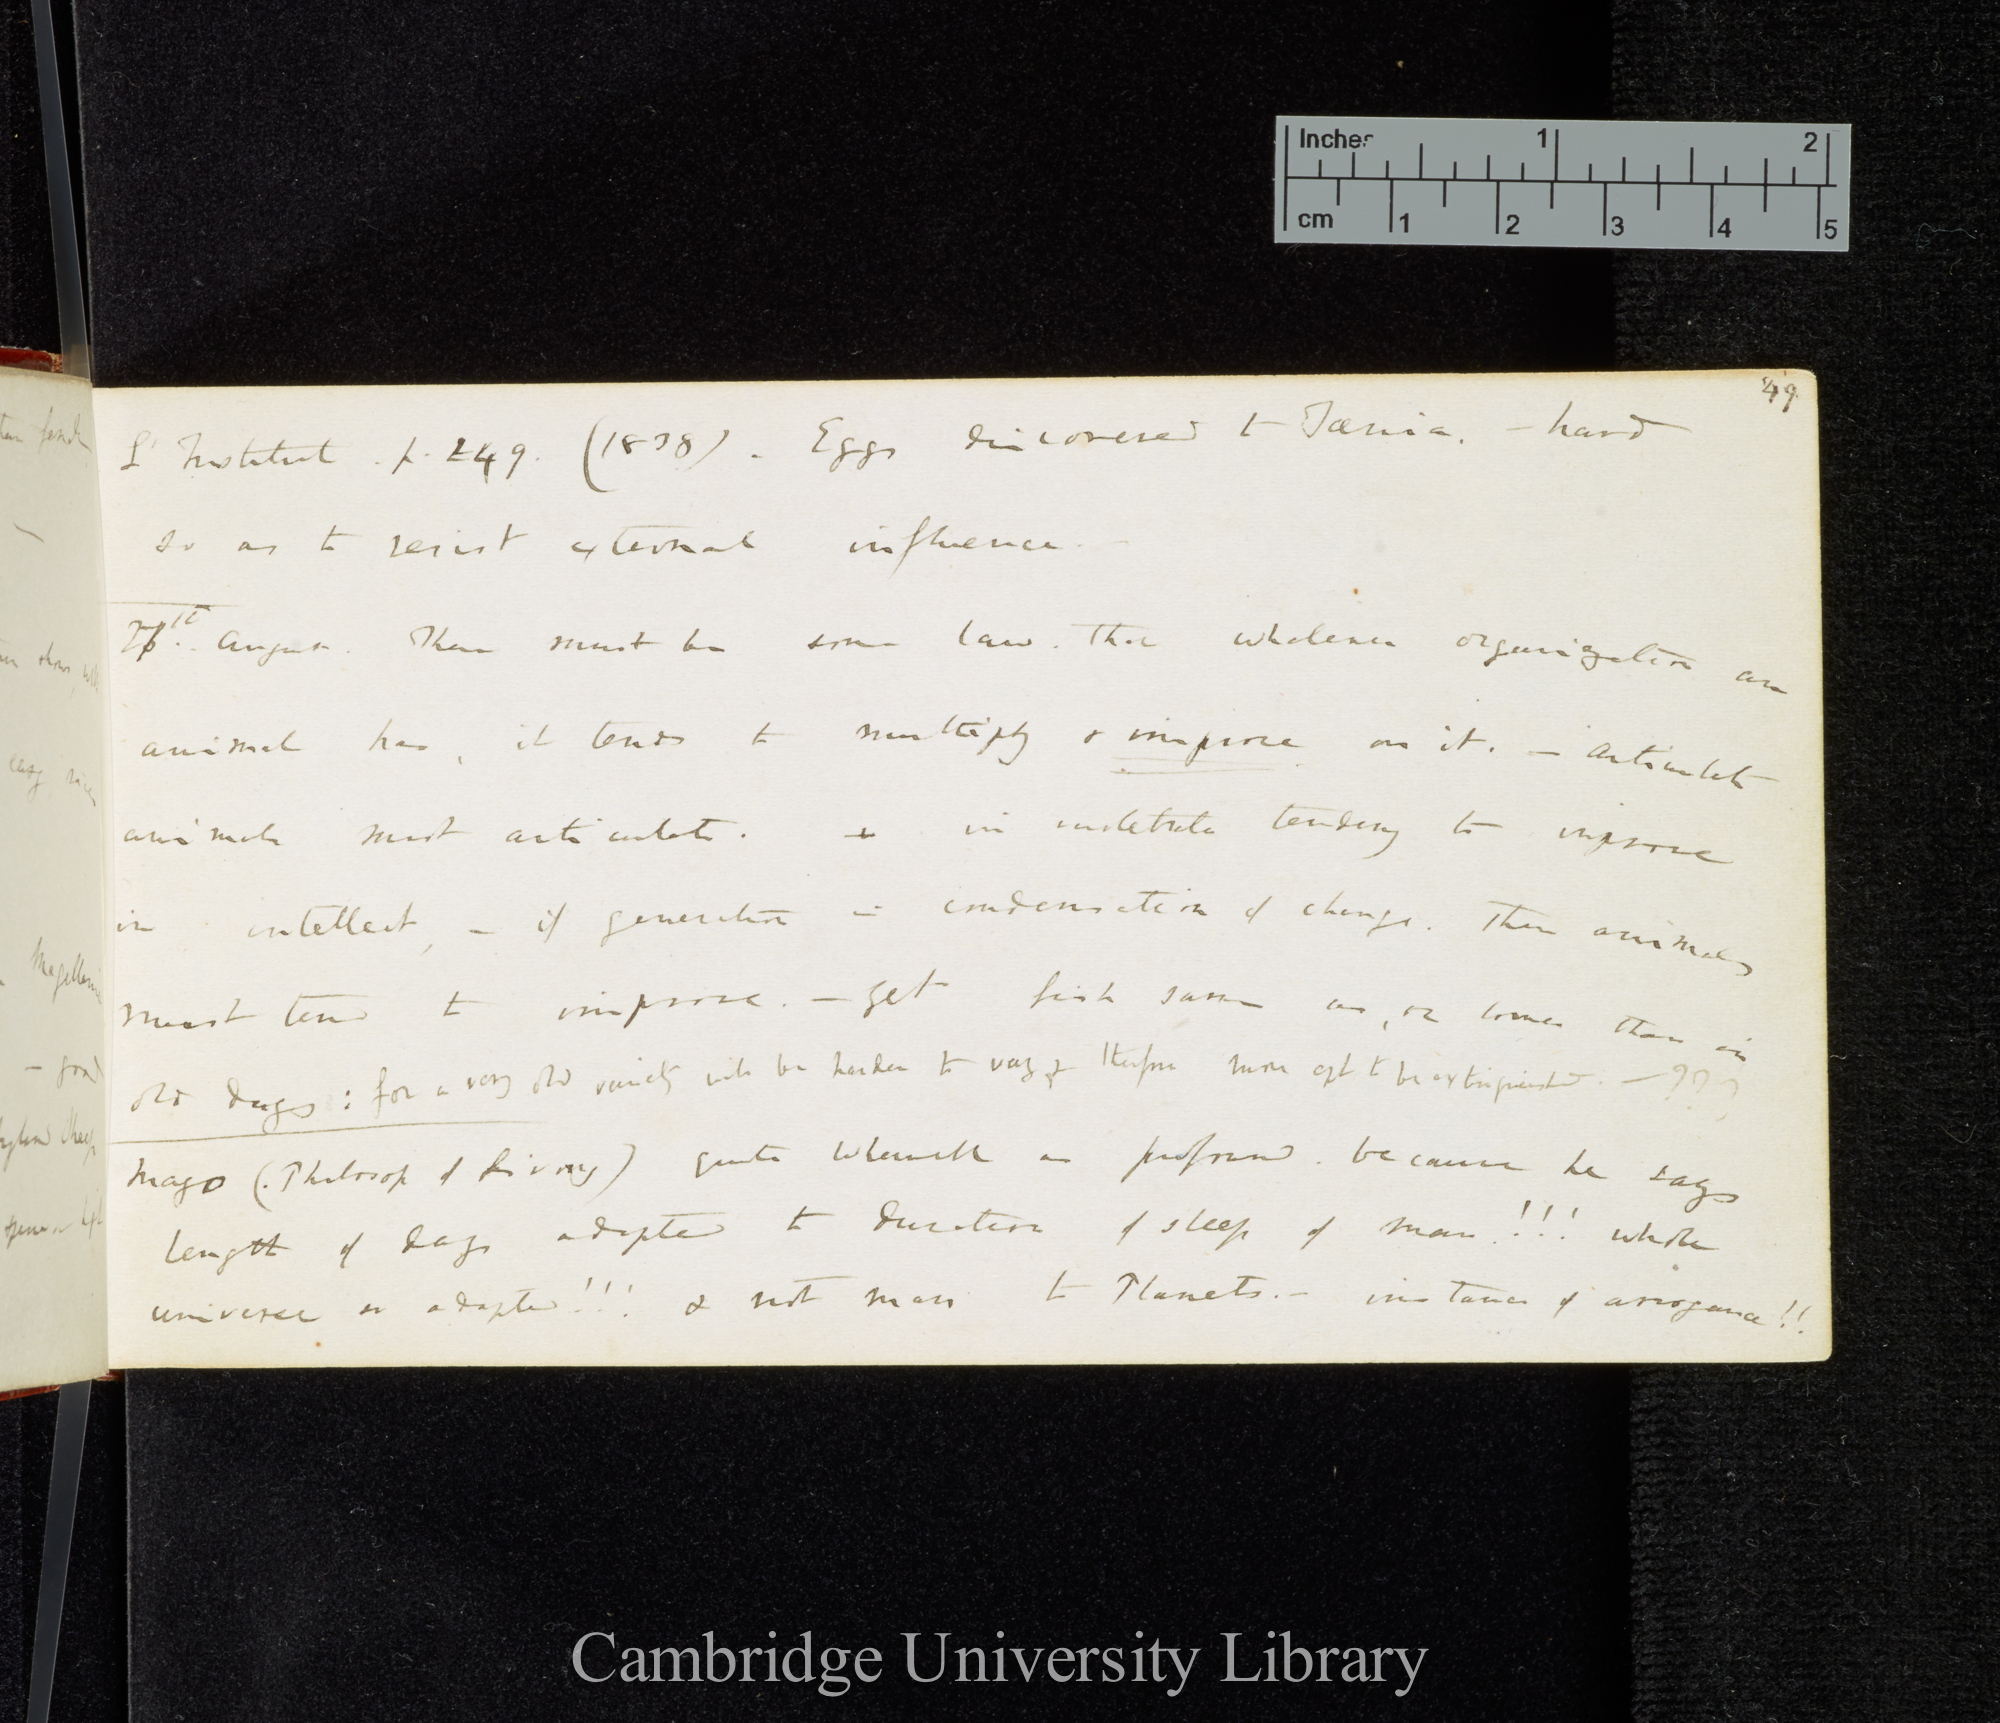 Inches 1 2
cm 1 2 3 4 5
49
L'Institut. p. 249. (1838). Eggs discovered to Taenia. — hard
so as to resist external influence. —
August. There must be some law. that whatever organization an
animal has, it tends to multiply & improve on it. — Articulate
animals must articulate. & in vertebrata tendency to improve
in intellect, — if generation is condensation of changes. then animals
must tend to improve. — yet fish same as, or lower than in
old days; for a very old variety will be harder to vary & therefore more apt to be extinguished. — ???
Mayo (Philosop of Living) quote Whewell as profound. because he says
length of days adapted to duration of sleep of man!!! whole
universe so adapted!!! & not man to Planets. — instance of arrogance!!
Cambridge University Library